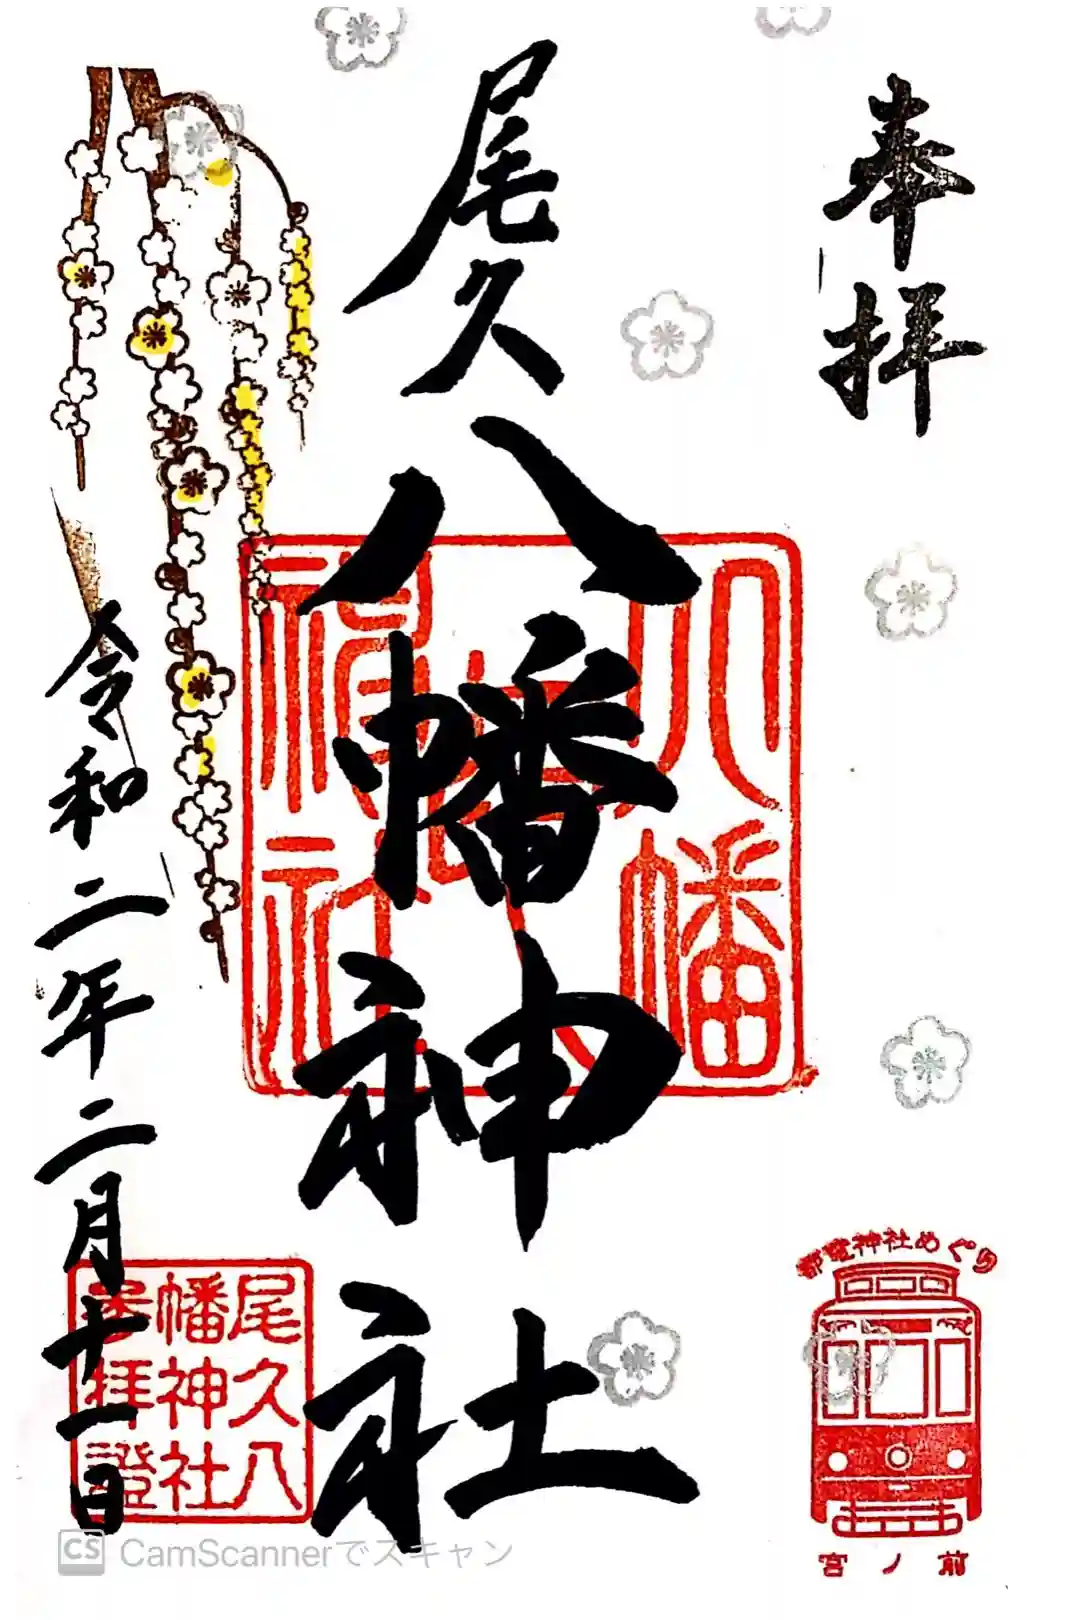 奉拝
尾久八幡神社
八幡
神社
令和二年二月十一日
尾久八
幡神社
参拝證
都電神社めぐり
宮ノ前
CS CamScannerでスキャン